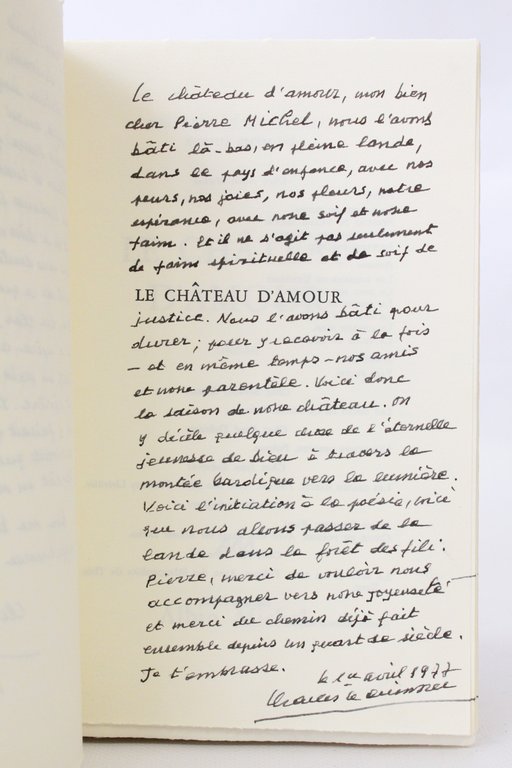 Le château d'amour, mon bien
cher Pierre Michel, nous l'avons
bâti là-bas, en pleine lande,
dans le pays d'enfance, avec nos
peurs, nos joies, nos pleurs, notre
espérance, avec notre soif et notre
faim. Et il ne s'agit pas seulement
de faim spirituelle et de soif de
LE CHÂTEAU D'AMOUR
justice. Nous l'avons bâti pour
durer; pour y recevoir à la fois
- et en même temps - nos amis
et notre parentèle. Voici donc
la saison de notre château. On
y décèle quelque chose de l'éternelle
jeunesse de Dieu à travers la
montée bardique vers la lumière.
Voici l'initiation à la poésie, voici
que nous allons passer de la
lande dans la forêt des fili.
Pierre, merci de vouloir nous
accompagner vers notre joyeuseté
et merci du chemin déjà fait
ensemble depuis un quart de siècle.
Je t'embrasse.
le 1er avril 1977
Charles Le Quintrec